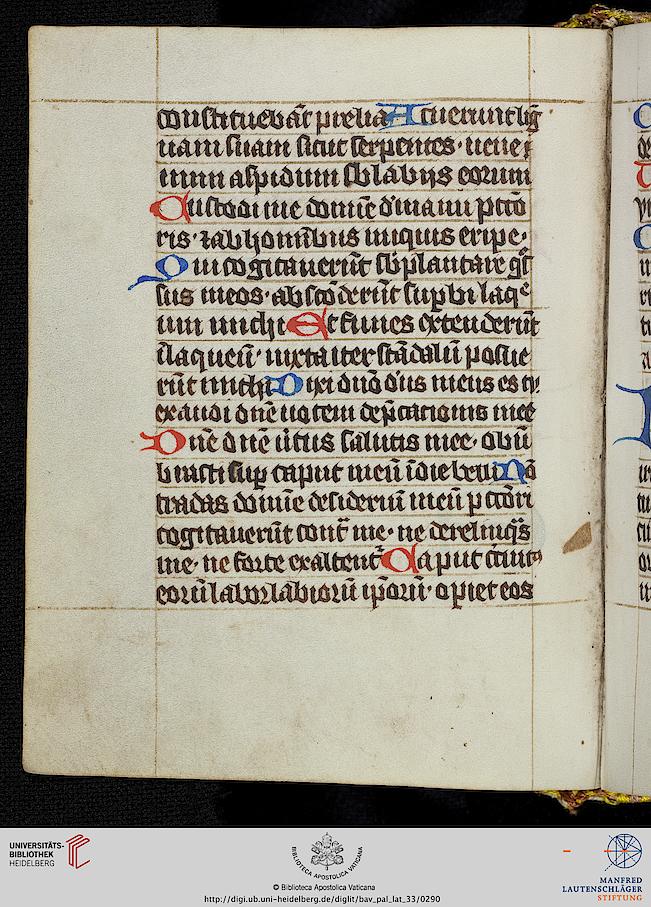 constituebāt prelia Acuerunt līg
uam suam sicut serpentes · uene
num aspidum sb labijs eorum
Custodi me domīe d' manu pcctō
ris · ⁊ ab homībus iniquis eripe ·
Qui cogitauerūt sbplantare gs̄
sus meos · abscōderūt supbi laqe
um michi Et funes extenderūt
ī laqueū · iuxta iter scādalū posue
rūt michi Dixi dnō d'us meus es tu
exaudi dn̄e uocem dep̄cationis mee
Dn̄e dn̄e ūtus salutis mee · obū
brasti sup caput meū ī die belli Nō
tradas domīe desideriū meū pctōri
cogitauerūt cont̄ me · ne derelinqs̄
me · ne forte exaltent Caput circuit
eorū labor labiorū ip̄orū · opiet eos
UNIVERSITÄTS-
BIBLIOTHEK
HEIDELBERG
BIBLIOTECA APOSTOLICA VATICANA
© Biblioteca Apostolica Vaticana
http://digi.ub.uni-heidelberg.de/diglit/bav_pal_lat_33/0290
MANFRED
LAUTENSCHLÄGER
STIFTUNG